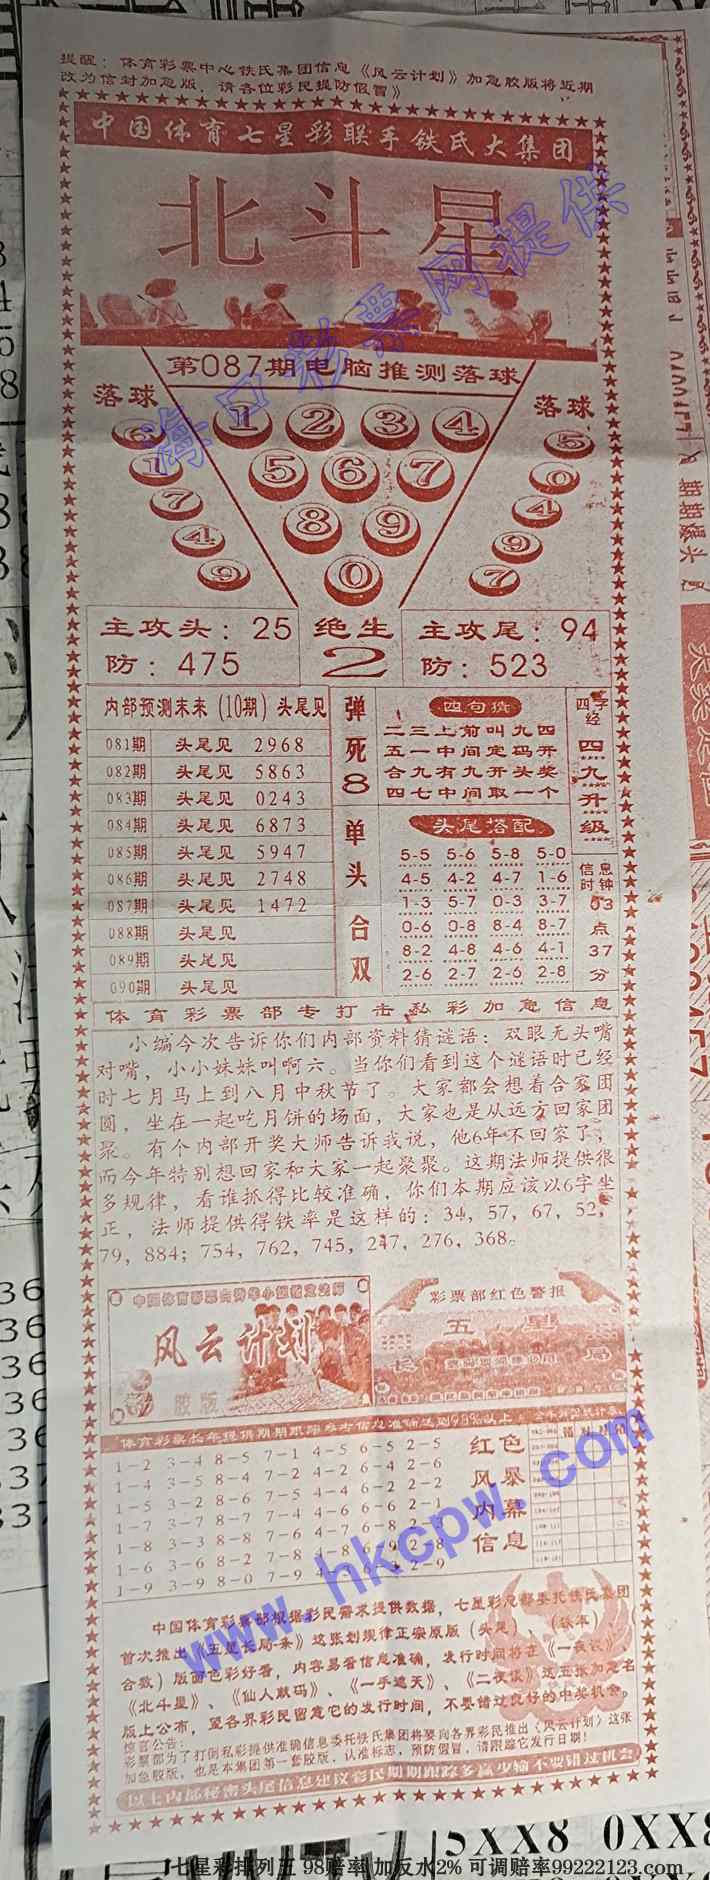 提醒：体育彩票中心铁氏集团信息《风云计划》加急胶版将近期
改为信封加急版，请各位彩民提防假冒》
中国体育七星彩联手铁氏大集团
北斗星
海口彩票网提供
第087期电脑推测落球
落球
6
1
7
4
9
1 2 3 4
5 6 7
8 9
0
落球
5
0
4
9
7
主攻头：25
防：475
绝生
2
主攻尾：94
防：523
内部预测未来（10期）头尾见
081期 头尾见 2968
082期 头尾见 5863
083期 头尾见 0243
084期 头尾见 6873
085期 头尾见 5947
086期 头尾见 2748
087期 头尾见 1472
088期 头尾见
089期 头尾见
090期 头尾见
弹死8
单头
合双
四句猜
二三上前叫九四
五一中间定码开
合九有九开头奖
四七中间取一个
四字经
四九升级
头尾搭配
5-5 5-6 5-8 5-0
4-5 4-2 4-7 1-6
1-3 5-7 0-3 3-7
0-6 0-8 8-4 8-7
8-2 4-8 4-6 4-1
2-6 2-7 2-6 2-8
信息时钟
点
37
分
体育彩票部专打击私彩加急信息
小编今次告诉你们内部资料猜谜语：双眼无头嘴
对嘴，小小妹妹叫啊六。当你们看到这个谜语时已经
时七月马上到八月中秋节了。大家都会想看合家团
圆，坐在一起吃月饼的场面，大家也是从远方回家团
聚。有个内部开奖大师告诉我说，他6年不回家了，
而今年特别想回家和大家一起聚聚。这期法师提供很
多规律，看谁抓得比较准确，你们本期应该以6字坐
正，法师提供得铁率是这样的：34，57，67，52，
79，884；754，762，745，247，276，368。
风云计划
胶版
彩票部红色警报
五星
长局
体育彩票长年提供期期跟踪参考信息准确达到98%以上
1-2 3-4 8-5 7-1 4-5 6-5 2-5
1-4 3-5 8-4 7-2 4-2 6-4 2-6
1-5 3-2 8-6 7-5 4-4 6-2 2-2
1-7 3-7 8-7 7-4 4-6 6-6 2-1
1-8 3-3 8-8 7-6 4-7 6-8 2-3
1-6 3-6 8-2 7-8 4-8 6-9 2-8
1-9 3-9 8-0 7-9
2-9
红色
风暴
内幕
信息
www.hkcpw.com
中国体育彩票部根据彩民需求提供数据，七星彩总部委托铁氏集团
首次推出《五星长局一条》这张划规律正宗原版（头尾）、（铁率）、
合数）版面色彩好看，内容易看信息准确，发行时间将在《一夜谈》、
《北斗星》、《仙人献码》、《一手遮天》、《二夜谈》这五张加急名
版上公布，望各界彩民留意它的发行时间，不要错过良好的中奖机会。
惊喜公告：
彩票部为了打倒私彩提供准确信息委托铁氏集团将要向各界彩民推出《风云计划》这张
加急胶版，也是本集团第一套胶版，认准标志，预防假冒，请跟踪它发行日期！
以上内部秘密头尾信息建议彩民期期跟踪多赢少输不要错过机会
5XX8 0XX8
七星彩排列五 98赔率 加反水2% 可调赔率99222123.com